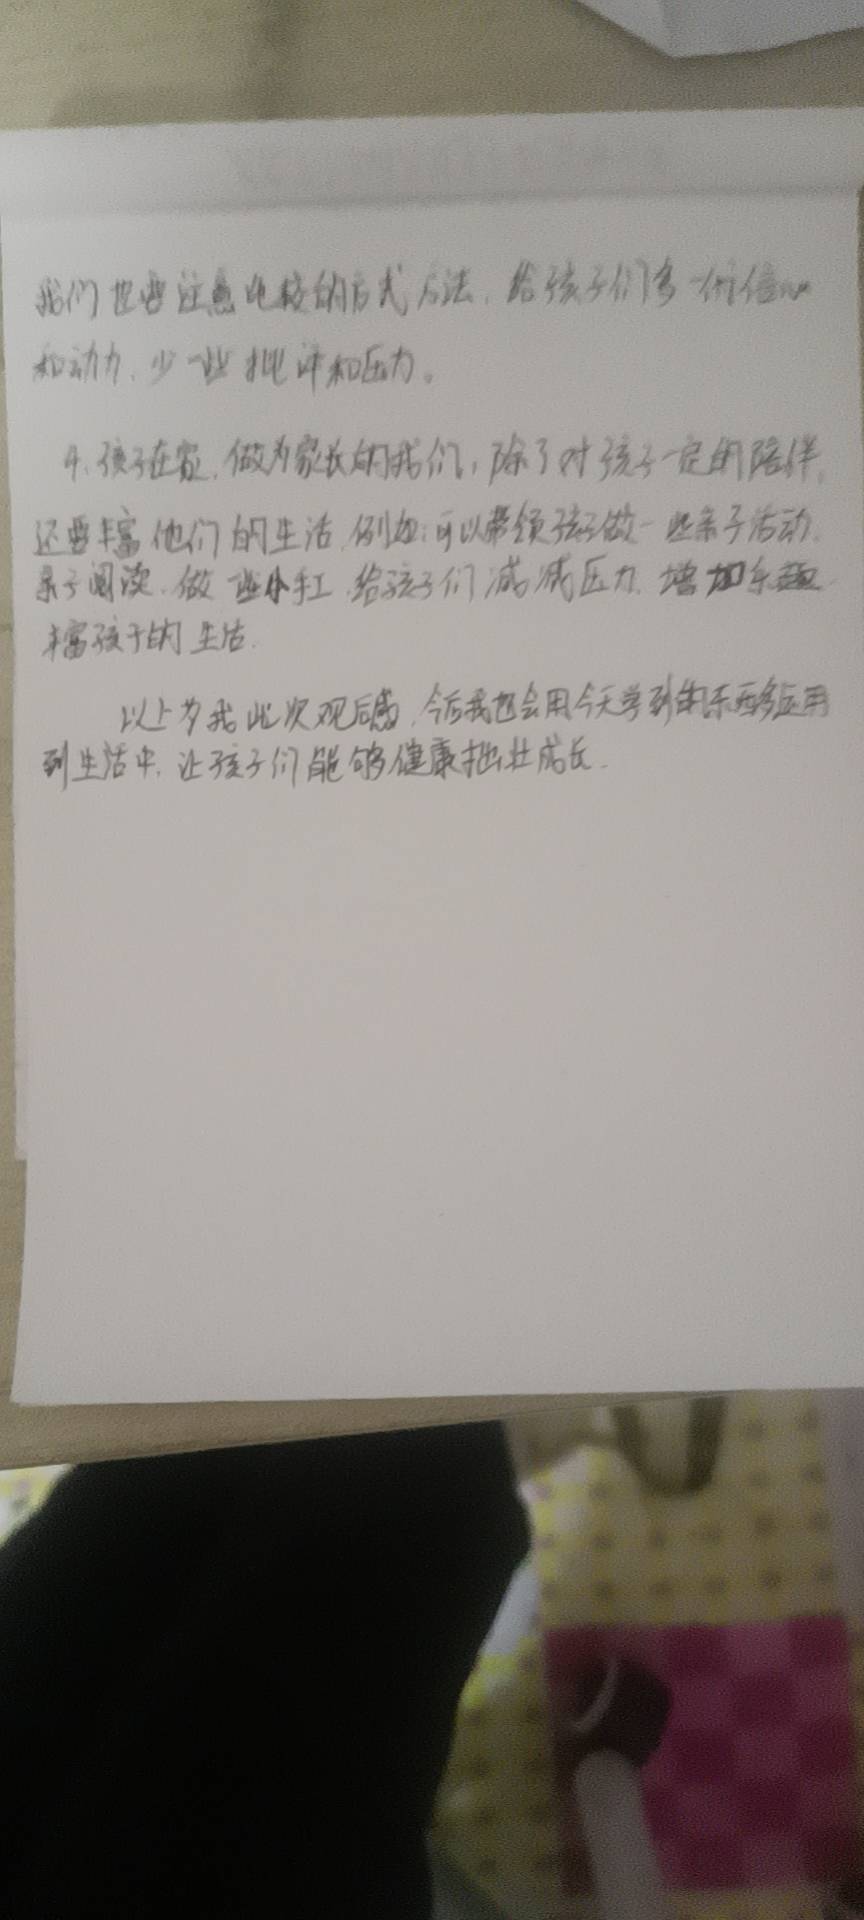 我们也要注意比较的方式方法，给孩子们多一份信心
和动力，少一些批评和压力。
4、孩子在家，做为家长的我们，除了对孩子一定的陪伴，
还要丰富他们的生活，例如：可以带领孩子做一些亲子活动，
亲子阅读，做一些小手工，给孩子们减减压力，增加乐趣
丰富孩子的生活。
以上为我此次观后感，今后我也会用今天学到的东西多运用
到生活中，让孩子们能够健康茁壮成长。